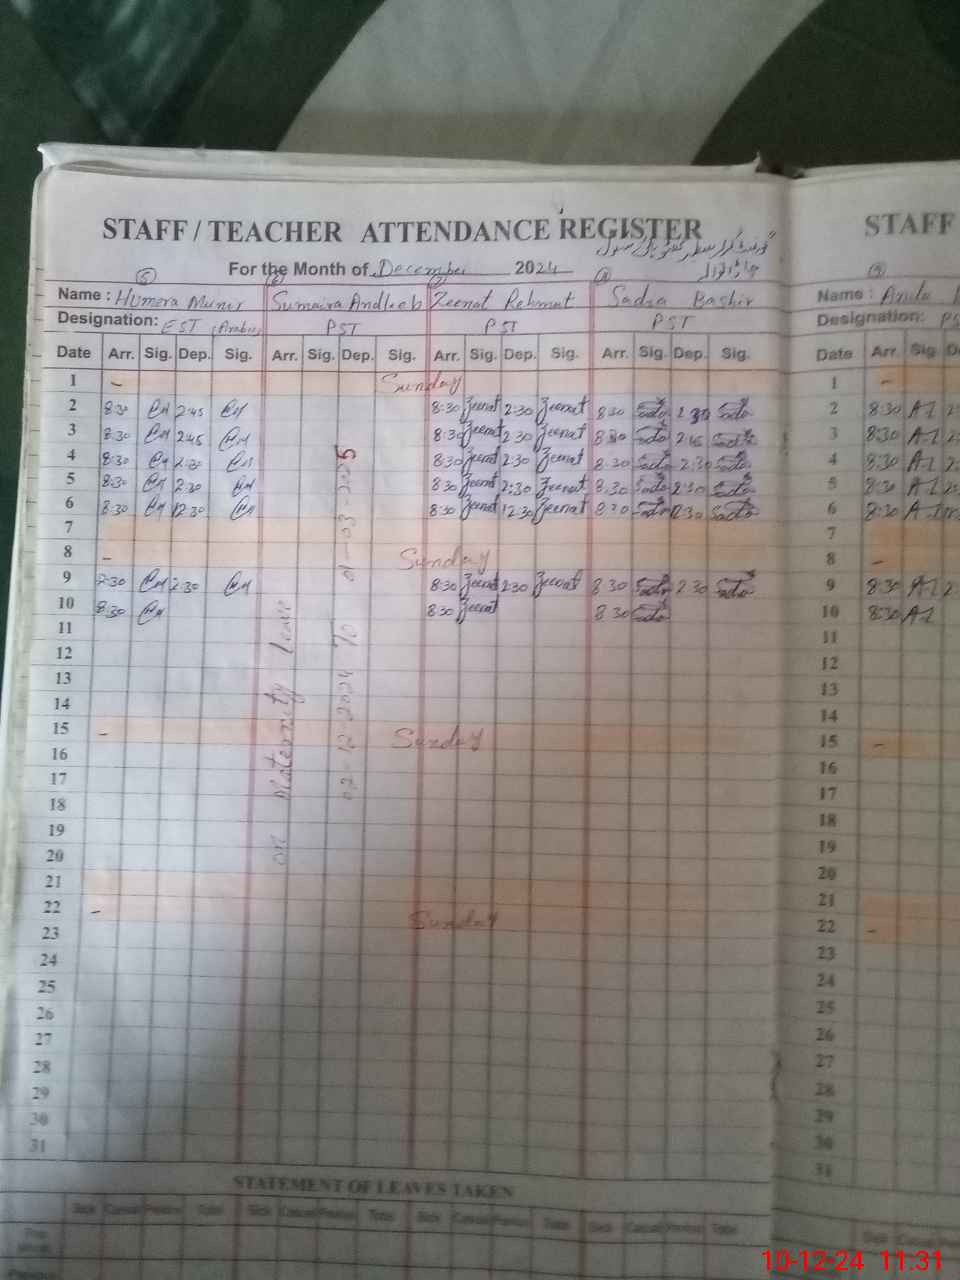 STAFF / TEACHER ATTENDANCE REGISTER
For the Month of December 2024
5 6 8
Name : Humera Munir Sumaira Andleeb Zeenat Rehmat Sadia Bashir
Designation: EST (Arabic) PST PST PST
Date Arr. Sig. Dep. Sig. Arr. Sig. Dep. Sig. Arr. Sig. Dep. Sig. Arr. Sig. Dep. Sig.
1 - Sunday
2 8:30 2:45 8:30 Zeenat 2:30 Zeenat 8:30 Sadia 2:30 Sadia
3 8:30 2:45 8:30 Zeenat 2:30 Zeenat 8:30 Sadia 2:45 Sadia
4 8:30 2:30 8:30 Zeenat 2:30 Zeenat 8:30 Sadia 2:30 Sadia
5 8:30 2:30 8:30 Zeenat 2:30 Zeenat 8:30 Sadia 2:30 Sadia
6 8:30 12:30 8:30 Zeenat 12:30 Zeenat 8:30 Sadia 12:30 Sadia
7
8 - Sunday
9 8:30 2:30 8:30 Zeenat 2:30 Zeenat 8:30 Sadia 2:30 Sadia
10 8:30 8:30 Zeenat 8:30 Sadia
11
12
13
14
15 - Sunday
16
17
18
19
20
21
22 - Sunday
23
24
25
26
27
28
29
30
31
on Maternity leave
02-12-2024 To 01-03-2025
STATEMENT OF LEAVES TAKEN
Sick Casual Total Sick Casual Total Sick Casual Total Sick Casual Total
STAFF
9
Name :
Designation: PS
Date Arr. Sig D
1 -
2 8:30 A-I
3 8:30 A-I
4 8:30 A-I
5 8:30 A-I
6 8:30
7
8 -
9 8:30 A-I
10 8:30 A-I
11
12
13
14
15 -
16
17
18
19
20
21
22 -
23
24
25
26
27
28
29
30
31
10-12-24 11:31